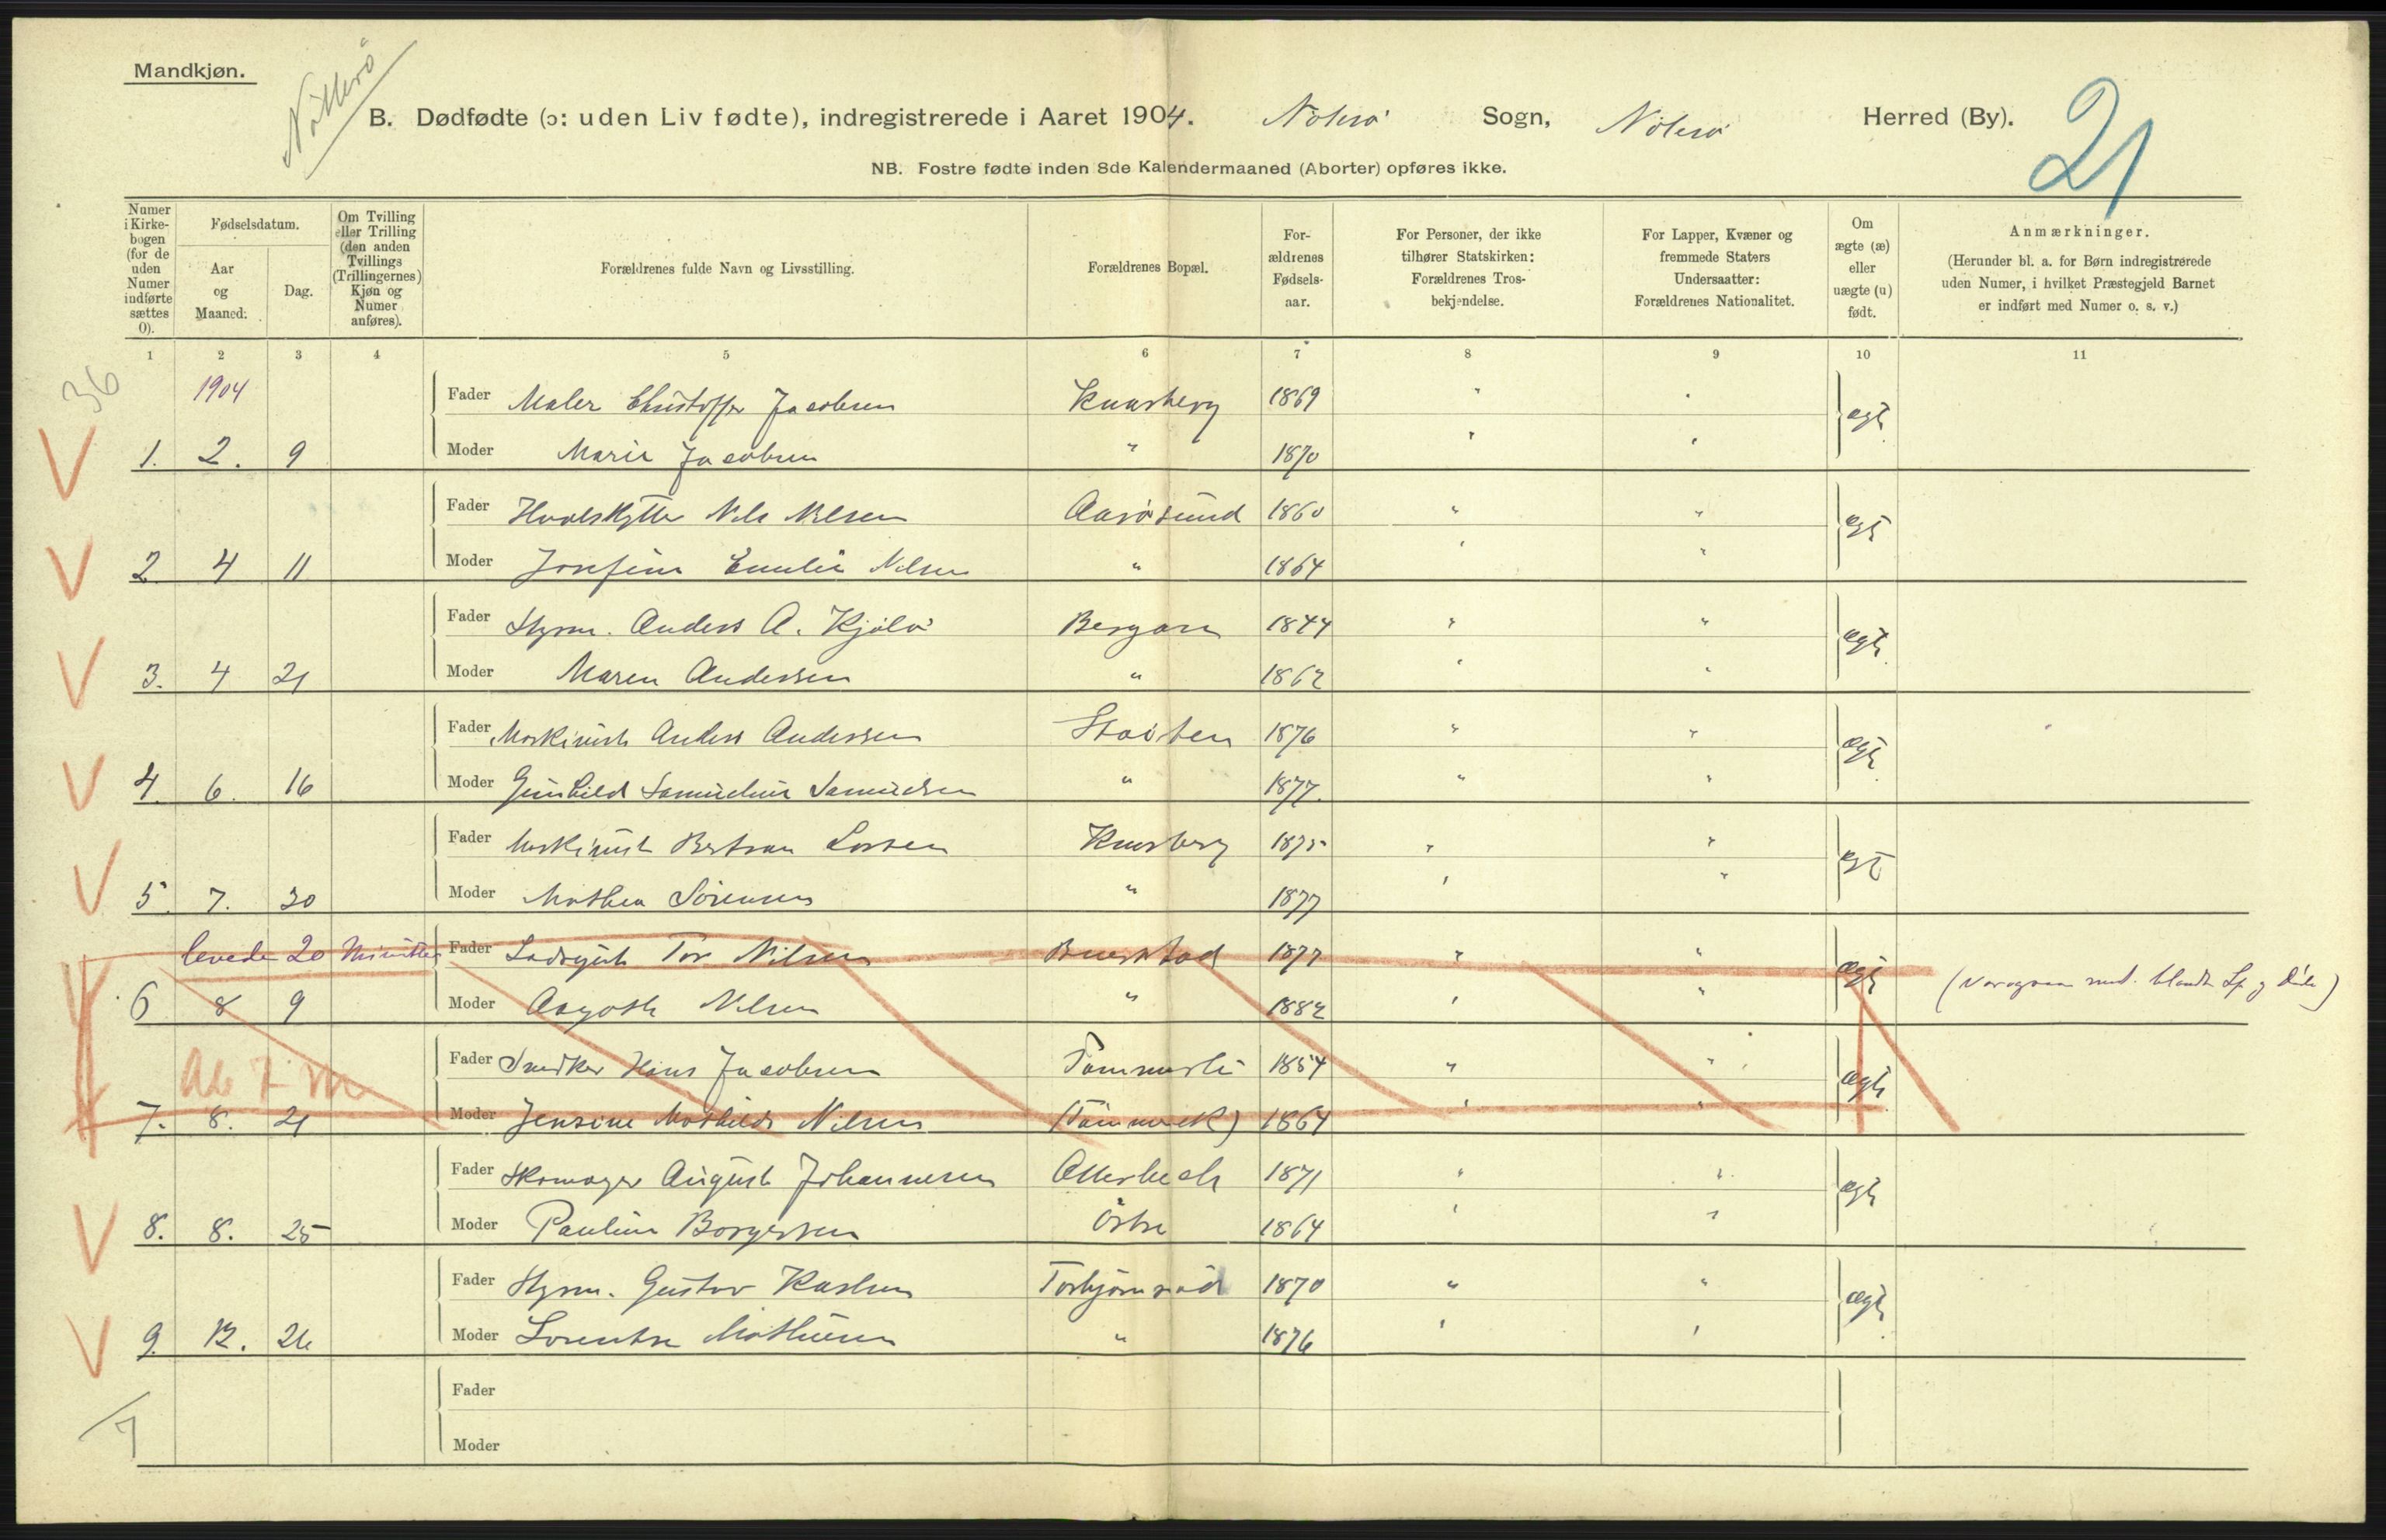 Mandkjøn.
Nøtterø
B. Dødfødte (ɔ: uden Liv fødte), indregistrerede i Aaret 1904. Nøterø Sogn, Nøterø Herred (By).
21
NB. Fostre fødte inden 8de Kalendermaaned (Aborter) opføres ikke.
Numer i Kirkebogen (for de uden Numer indførte sættes 0).
Fødselsdatum.
Aar og Maaned.
Dag.
Om Tvilling eller Trilling (den anden Tvillings (Trillingernes) Kjøn og Numer anføres).
Forældrenes fulde Navn og Livsstilling.
Forældrenes Bopæl.
Forældrenes Fødselsaar.
For Personer, der ikke tilhører Statskirken: Forældrenes Trosbekjendelse.
For Lapper, Kvæner og fremmede Staters Undersaatter: Forældrenes Nationalitet.
Om ægte (æ) eller uægte (u) født.
Anmærkninger.
(Herunder bl. a. for Børn indregistrerede uden Numer, i hvilket Præstegjeld Barnet er indført med Numer o. s. v.)
1 2 3 4 5 6 7 8 9 10 11
36
1904 Fader Maler Christoffer Jacobsen Knarberg 1869 " " ægte
1. 2. 9 Moder Marie Jacobsen " 1870 " "
Fader Nils Nilsen Aarøsund 1860 " " ægte
2 4 11 Moder Josefine Emilie Nilsen " 1864 " "
Fader Styrm. Anders A. Kjølø Bergan 1844 " " ægte
3. 4 21 Moder Maren Andersen " 1862 " "
Fader Maskinist Anders Andersen 1876 " " ægte
4. 6. 16 Moder Gunhild Samuelsen " 1877. " "
Fader Maskinist Bertran Larsen Knarberg 1875 " " ægte
5. 7. 30 Moder Mathea Sørensen " 1877 " "
levede 20 Minutter Fader Tor Nilsen Buerstad 1877 " " ægte
6 8 9 Moder Aagoth Nilsen " 1882 " "
Fader Snedker Hans Jacobsen 1854 " " ægte
7. 8. 21 Moder Jensine Mathilde Nilsen 1864 " "
Fader Skomager August Johannesen Otterbech 1871 " " ægte
8. 8. 25 Moder Pauline Borgersen Østre 1864 " "
Fader Styrm. Gustav Karlsen Torbjørnrød 1870 " " ægte
9. 12. 26 Moder Lorentse Mathisen " 1876 " "
Fader
7
Moder